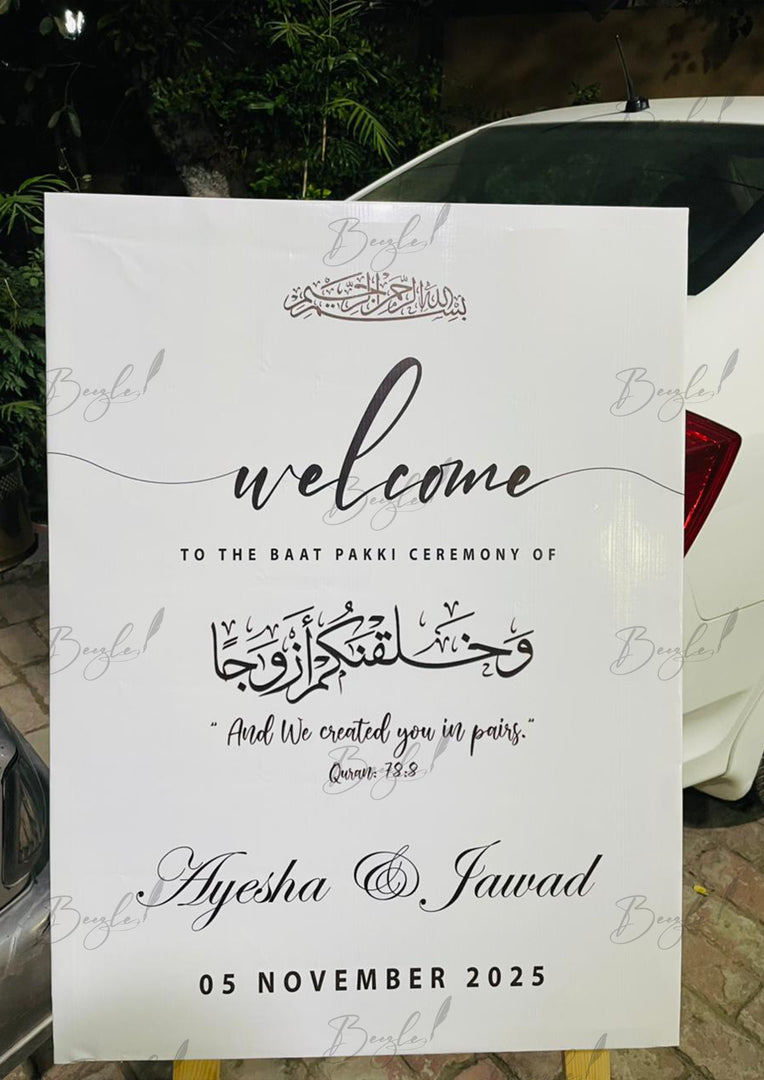 Beezle
بسم الله الرحمن الرحيم
Beezle Beezle
welcome
Beezle
TO THE BAAT PAKKI CEREMONY OF
وَخَلَقْنَكُمْ أَزْوَجًا
Beezle Beezle
" And We created you in pairs."
Quran: 78:8
Beezle
Ayesha & Jawad
Beezle Beezle
05 NOVEMBER 2025
Beezle